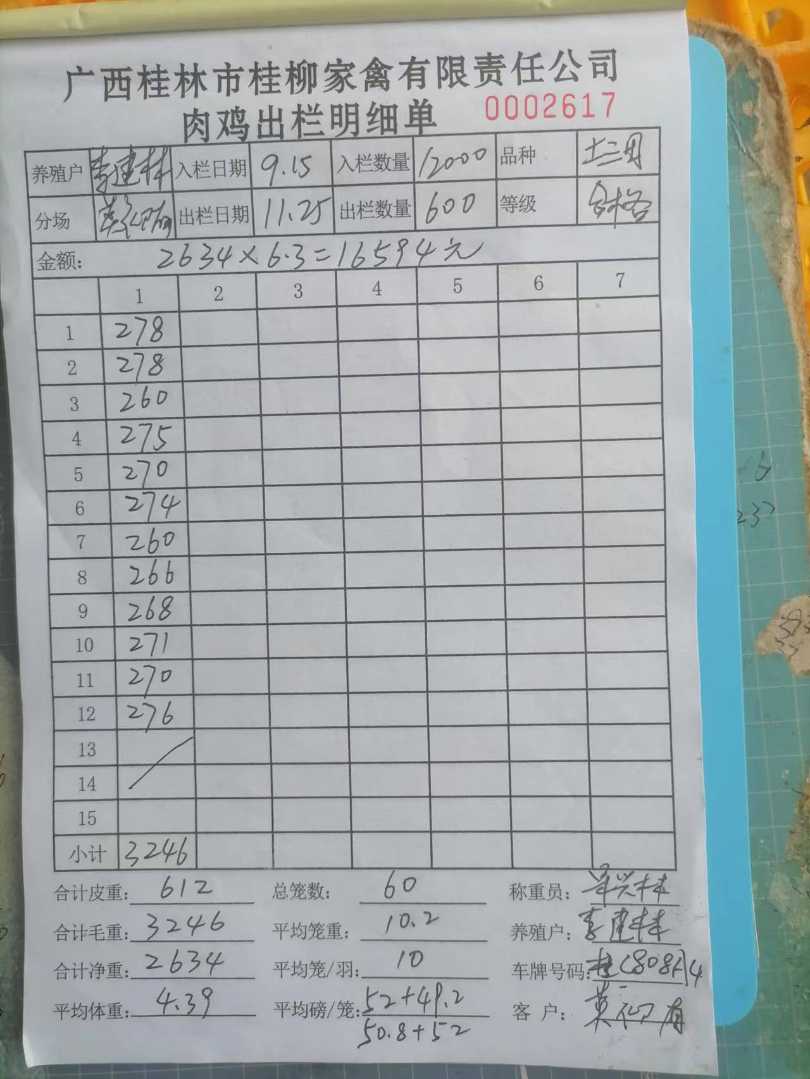 广西桂林市桂柳家禽有限责任公司
肉鸡出栏明细单 0002617
养殖户 李建林 入栏日期 9.15 入栏数量 12000 品种 土二号
分场 出栏日期 11.25 出栏数量 600 等级 合格
金额: 2634×6.3=16594元
1 2 3 4 5 6 7
1 278
2 278
3 260
4 275
5 270
6 274
7 260
8 266
9 268
10 271
11 270
12 276
13
14
15
小计 3246
合计皮重: 612 总笼数: 60 称重员:
合计毛重: 3246 平均笼重: 10.2 养殖户: 李建林
合计净重: 2634 平均笼/羽: 10 车牌号码: 桂C808A4
平均体重: 4.39 平均磅/笼: 52+49.2 客 户:
50.8+52